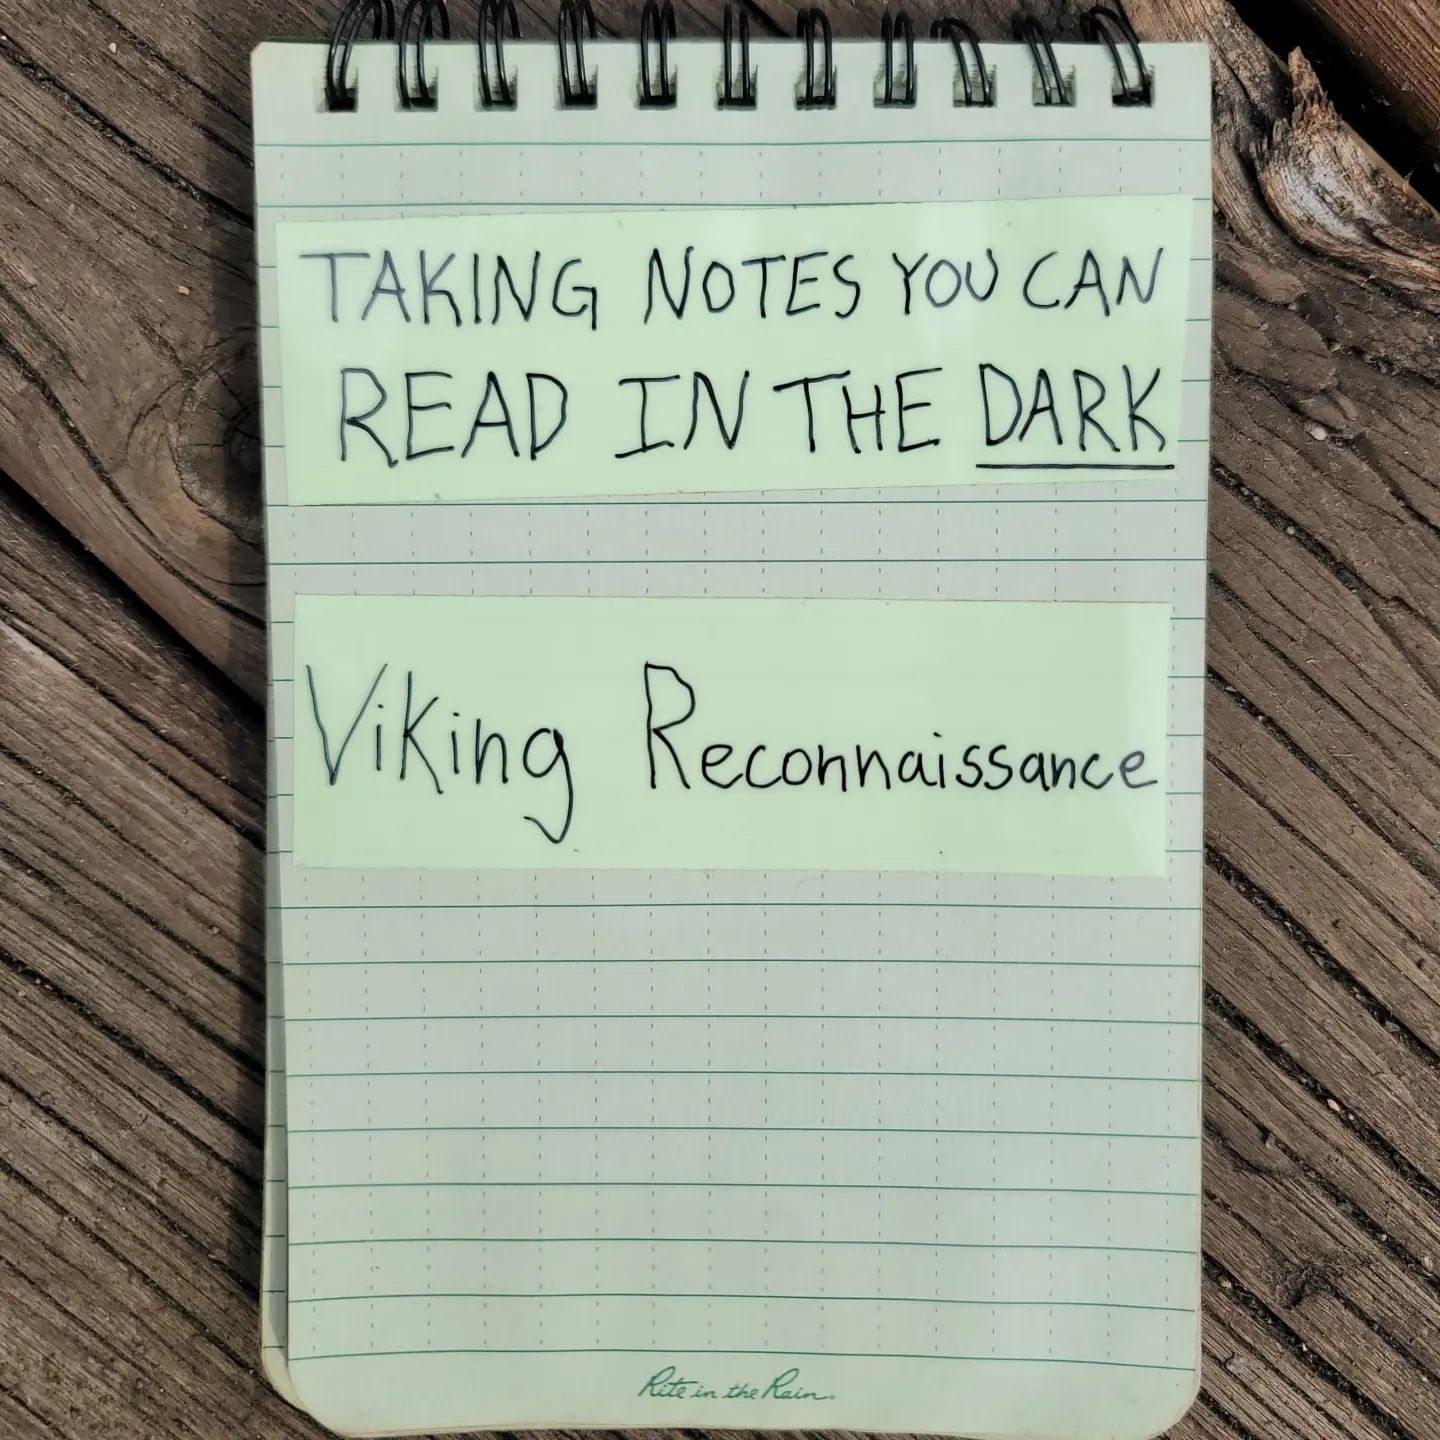 TAKING NOTES YOU CAN
READ IN THE DARK
Viking Reconnaissance
Rite in the Rain.